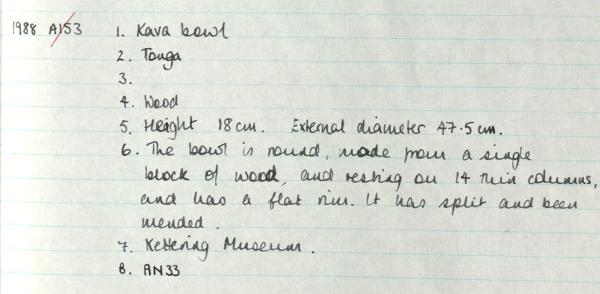 1988 A153 1. Kava bowl
2. Tonga
3.
4. Wood
5. Height 18 cm. External diameter 47.5 cm.
6. The bowl is round, made from a single
block of wood, and resting on 14 thin columns,
and has a flat rim. It has split and been
mended.
7. Kettering Museum.
8. AN33